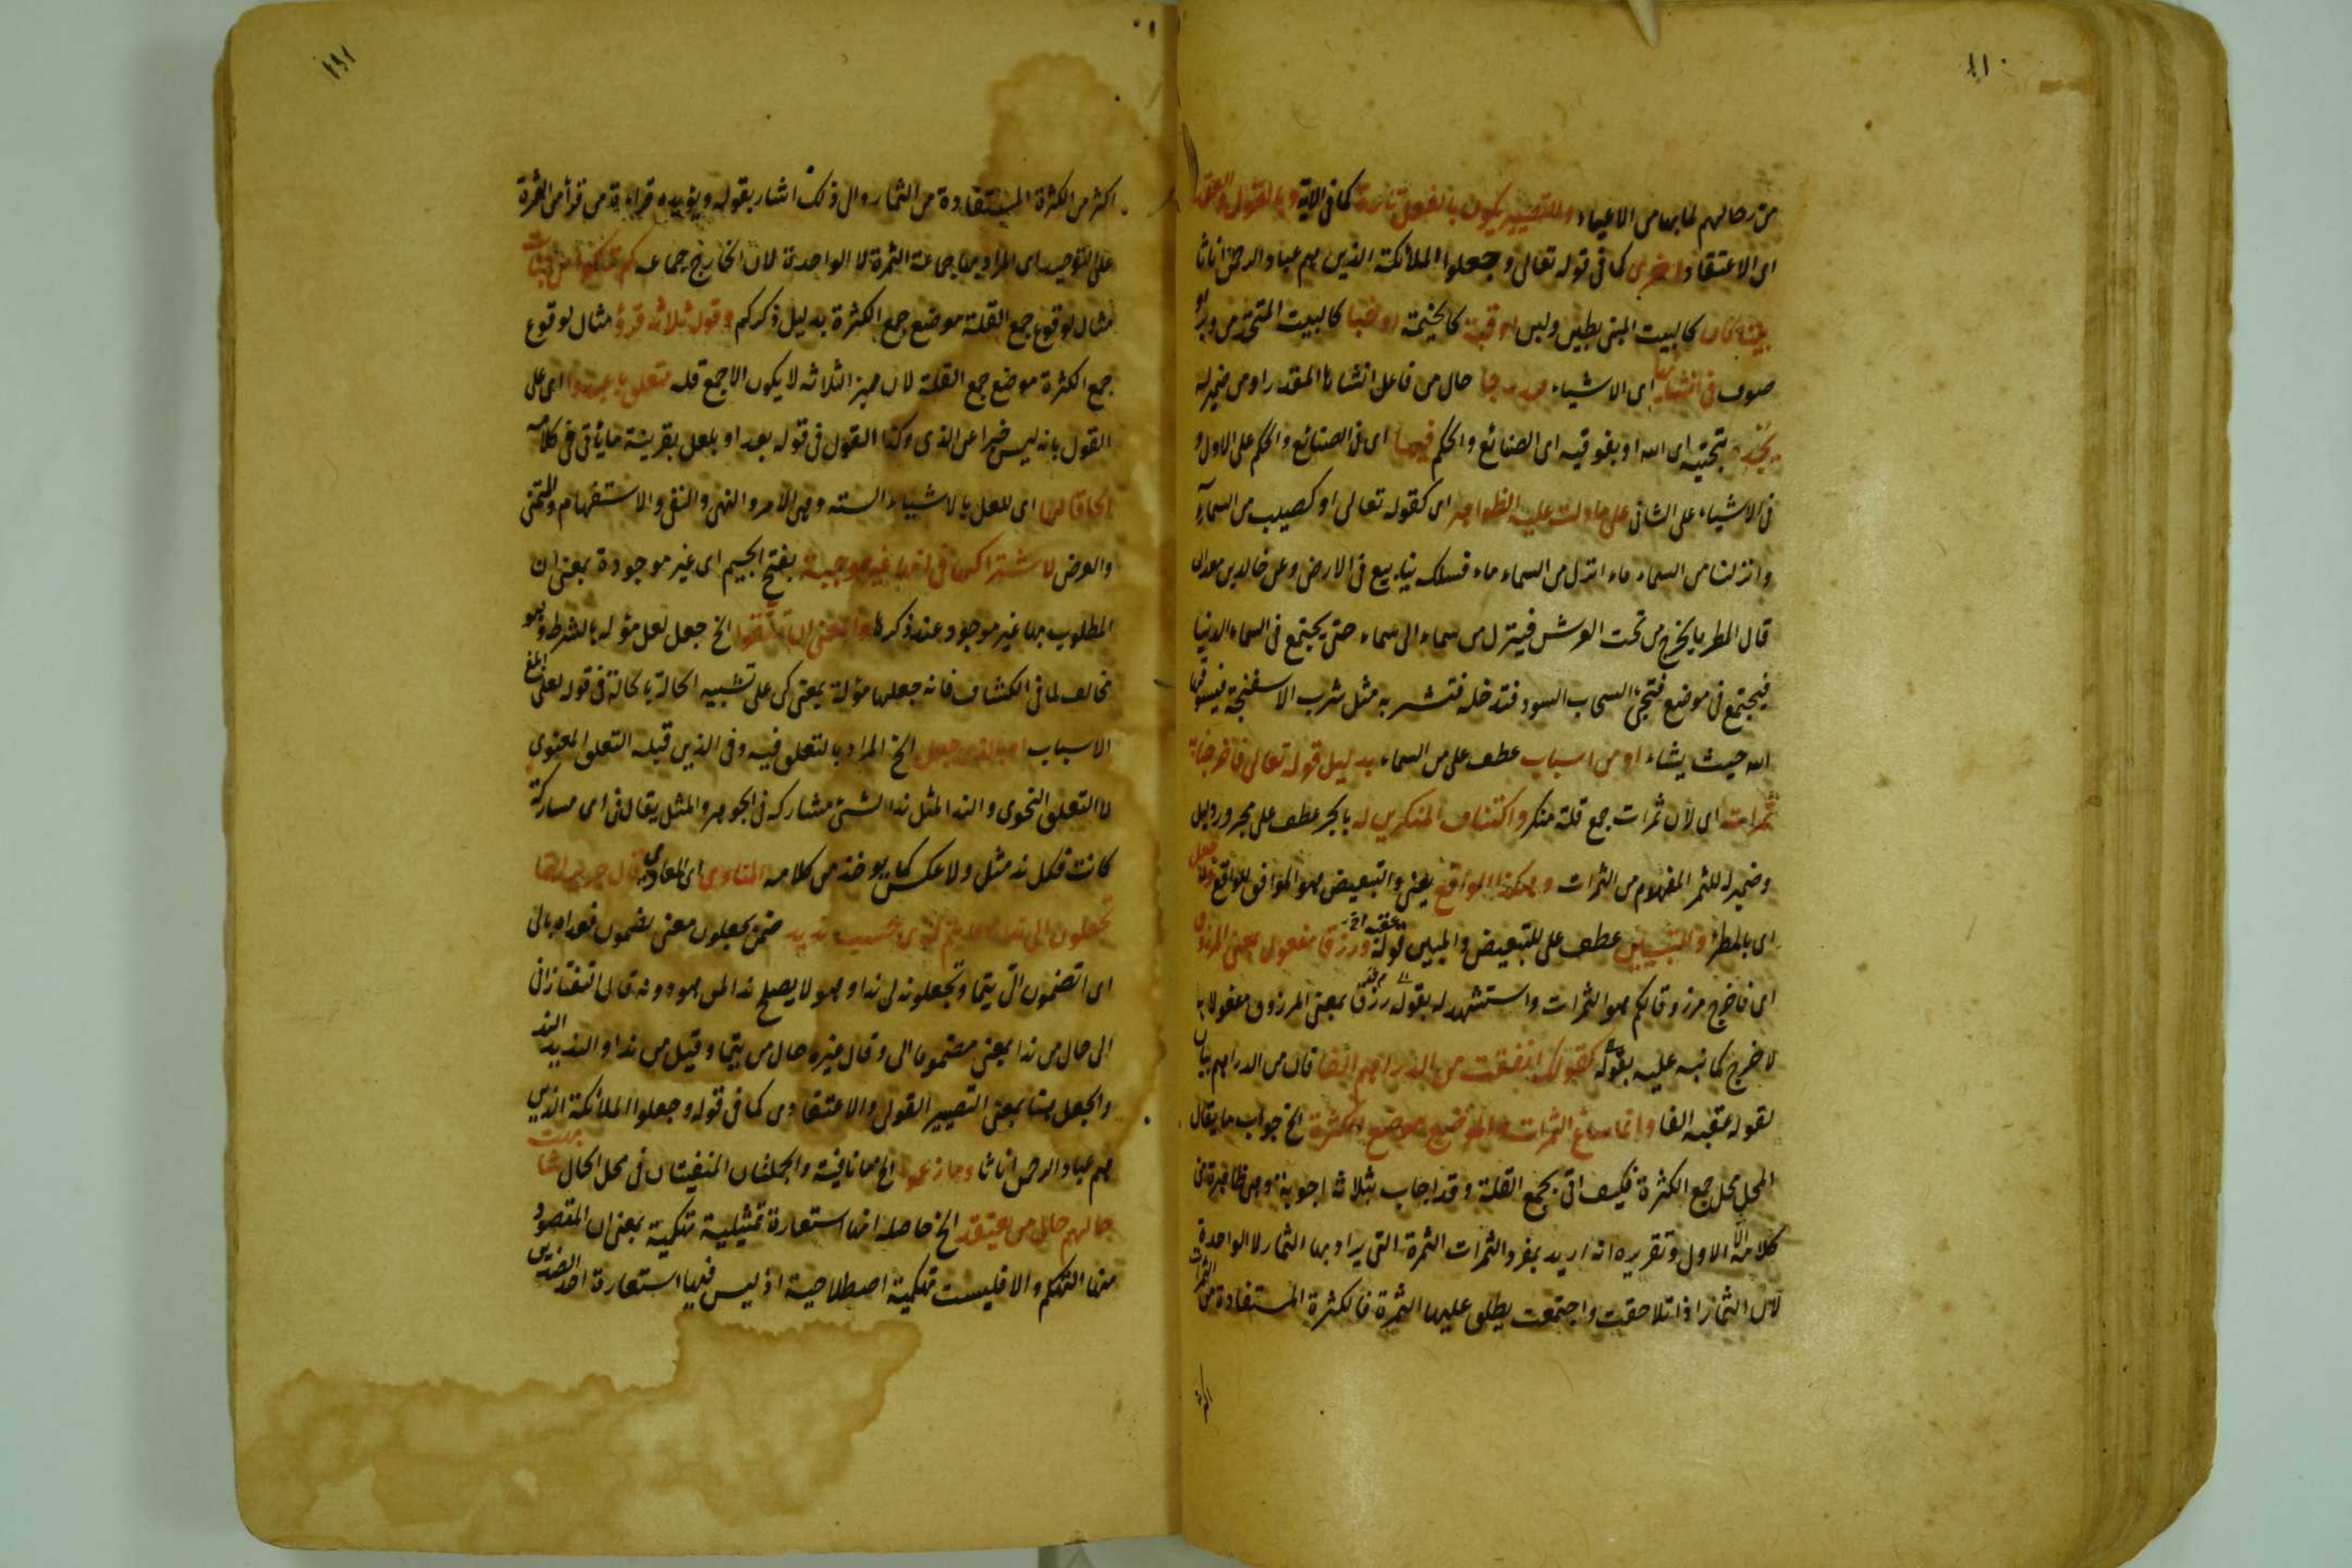 ١١٠
من رحالهم لما بها من الاعياء وللتصيير يكون بالفعل تارة كما فى الاية وبالقول والعقد
اى الاعتقاد اخرى كما فى قوله تعالى وجعلوا الملائكة الذين هم عباد الرحمن اناثا
بيتا كان كالبيت المبنى بطين ولبن او قبة كالخيمة او خبا كالبيت المتخذ من وبر او
صوف فى انشائها اى الاشياء مدرجا حال من فاعل انشاءها المقدر او من ضمير له
يجدد بتحتيه اى الله او بفوقيه اى الصنائع والحكم فيها اى فى الصنائع والحكم على الاول و
فى الاشياء على الثانى على ما دلت عليه الظواهر اى كقوله تعالى او كصيب من السماء
وانزلنا من السماء ماء انزل من السماء ماء فسلكه ينابيع فى الارض وعن خالد بن معدان
قال المطر ما يخرج من تحت العرش فينزل من سماء الى سماء حتى يجتمع فى السماء الدنيا
فيجتمع فى موضع فتجئ السحاب السود فتدخله فتشربه مثل شرب الاسفنجة فيسوقها
الله حيث يشاء او من اسباب عطف على من السماء بدليل قوله تعالى فاخرجنا به
ثمرات اى لان ثمرات جمع قلة منكر واكتناف المنكرين له بالجر عطف على مجرور دليل
وضمير له للثمر المفهوم من الثمرات وهكذا الواقع يعنى والتبعيض هو الموافق للواقع ولا جعل
اى بالمطر وللتبيين عطف على للتبعيض والمبين قوله عقبه ورزقا مفعول بمعنى المرزوق
اى فاخرج مرزوقا لكم هو الثمرات واستشهد له بقوله رزقا بمعنى المرزوق مفعولا به
لاخرج كما نبه عليه بقوله كقولك انفقت من الدراهم الفا فان من الدراهم بيان
لقوله عقبه الفا وانما ساغ الثمرات والموضع موضع الكثرة الخ جواب ما يقال
المحل محل جمع الكثرة فكيف اتى بجمع القلة وقد اجاب بثلاثة اجوبة وهى ظاهرة من
كلامه الا الاول وتقريره انه اريد بمفرد الثمرات الثمرة التى يراد بها الثمار لا الواحدة
لان الثمار اذا تلاحقت واجتمعت يطلق عليها الثمرة فالكثرة المستفادة من الثمرات
اكثر من الكثرة المستفادة من الثمار والى ذلك اشار بقوله ويؤيده قراءة من قرأ من الثمرة
على التوحيد اى المراد بها جماعة الثمرة لا الواحدة لان الخارج جماعه كم تركوا من جنات
مثال لوقوع جمع القلة موضع جمع الكثرة بدليل ذكر كم وقوله ثلاثة قروء مثال لوقوع
جمع الكثرة موضع جمع القلة لان مميز الثلاثه لا يكون الا جمع قله متعلق باعبدوا اى على
القول بانه ليس خبرا عن الذى وكذا القول فى قوله بعد او بلعل بقرينة ما يأتى فى كلامه
الحاقا لها اى للعل بالاشياء السته وهى الامر والنهى والنفى والاستفهام والتمنى
والعرض لاشتراكها فى انها غير موجبة بفتح الجيم اى غير موجودة بمعنى ان
المطلوب بها غير موجود عند ذكرها والمعنى ان تتقوا الخ جعل لعل مؤله بالشرط وهو
مخالف لما فى الكشاف فانه جعلها مؤلة بمعنى كى على تشبيه الحالة بالحالة فى قوله لعلى ابلغ
الاسباب او بالذى جعل الخ المراد بالتعلق فيه وفى الذين قبله التعلق المعنوى
لا التعلق النحوى والند المثل ند الشئ مشاركه فى الجوهر والمثل يقال فى اى مشاركة
كانت فكل ند مثل ولا عكس كما يوخذ من كلامه المناوى اى المعادى قال جرير اتيما
تجعلون الى ندا وما تيم لذى حسب نديد ضمن يجعلون معنى يضمون فعداه بالى
اى اتضمون الى تيما وتجعلونه لى ندا وهو لا يصلح ندا لمن هو دونه قال التفتازانى
الى حال من ندا بمعنى مضموما الى وقال غيره حال من تيما وقيل من ندا والنديد الند
والجعل هنا بمعنى التصيير القولى والاعتقادى كما فى قوله وجعلوا الملائكة الذين
هم عباد الرحمن اناثا وما زعموا الخ ما نافية والجملتان المنفيتان فى محل الحال شابهت
حالهم حال من يعتقد الخ حاصله انها استعارة تمثيلية تهكمية بمعنى ان المقصود
منها التهكم والا فليست تهكمية اصطلاحية اذ ليس فيها استعارة احد الضدين